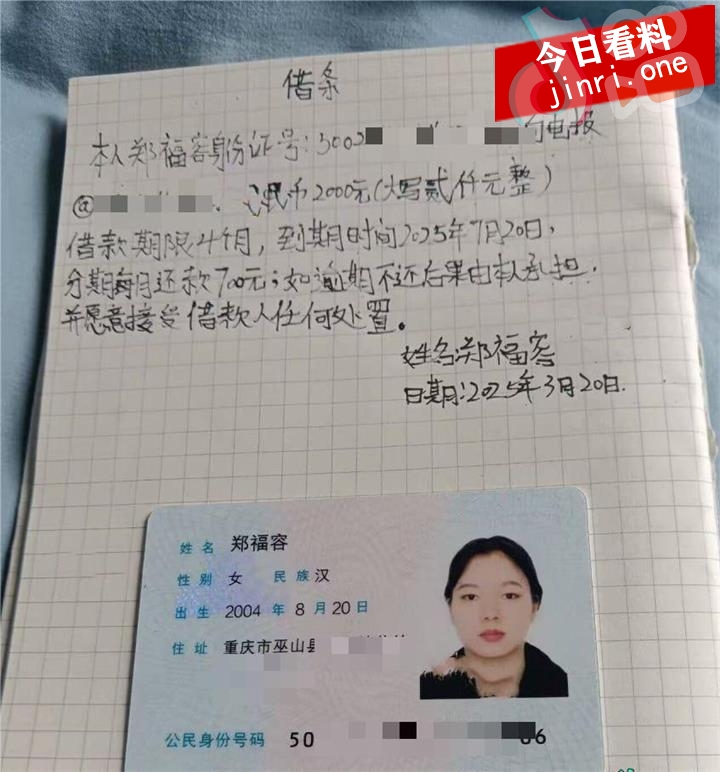 今日看料
jinri.one
借条
本人郑福容身份证号:5002 向电报
@ 民币2000元(大写贰仟元整)
借款期限4个月,到期时间2025年7月20日,
分期每月还款700元;如逾期不还后果由本人承担,
并愿意接受借款人任何处置。
姓名:郑福容
日期:2025年3月20日.
姓名 郑福容
性别 女 民族 汉
出生 2004 年 8 月 20 日
住址 重庆市巫山县
公民身份号码 50 06